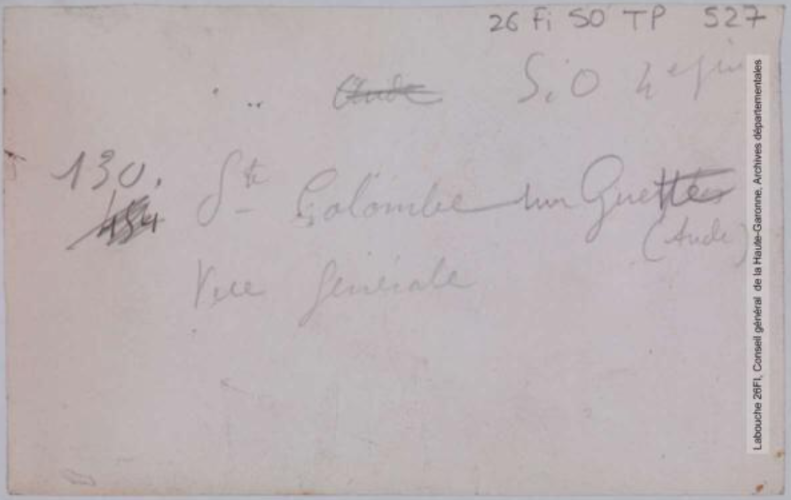 26 Fi SO TP 527
Aude S.O 4e
130. Ste Colombe sur Guette
154 (Aude)
Vue générale
Labouche 26FI, Conseil général de la Haute-Garonne, Archives départementales